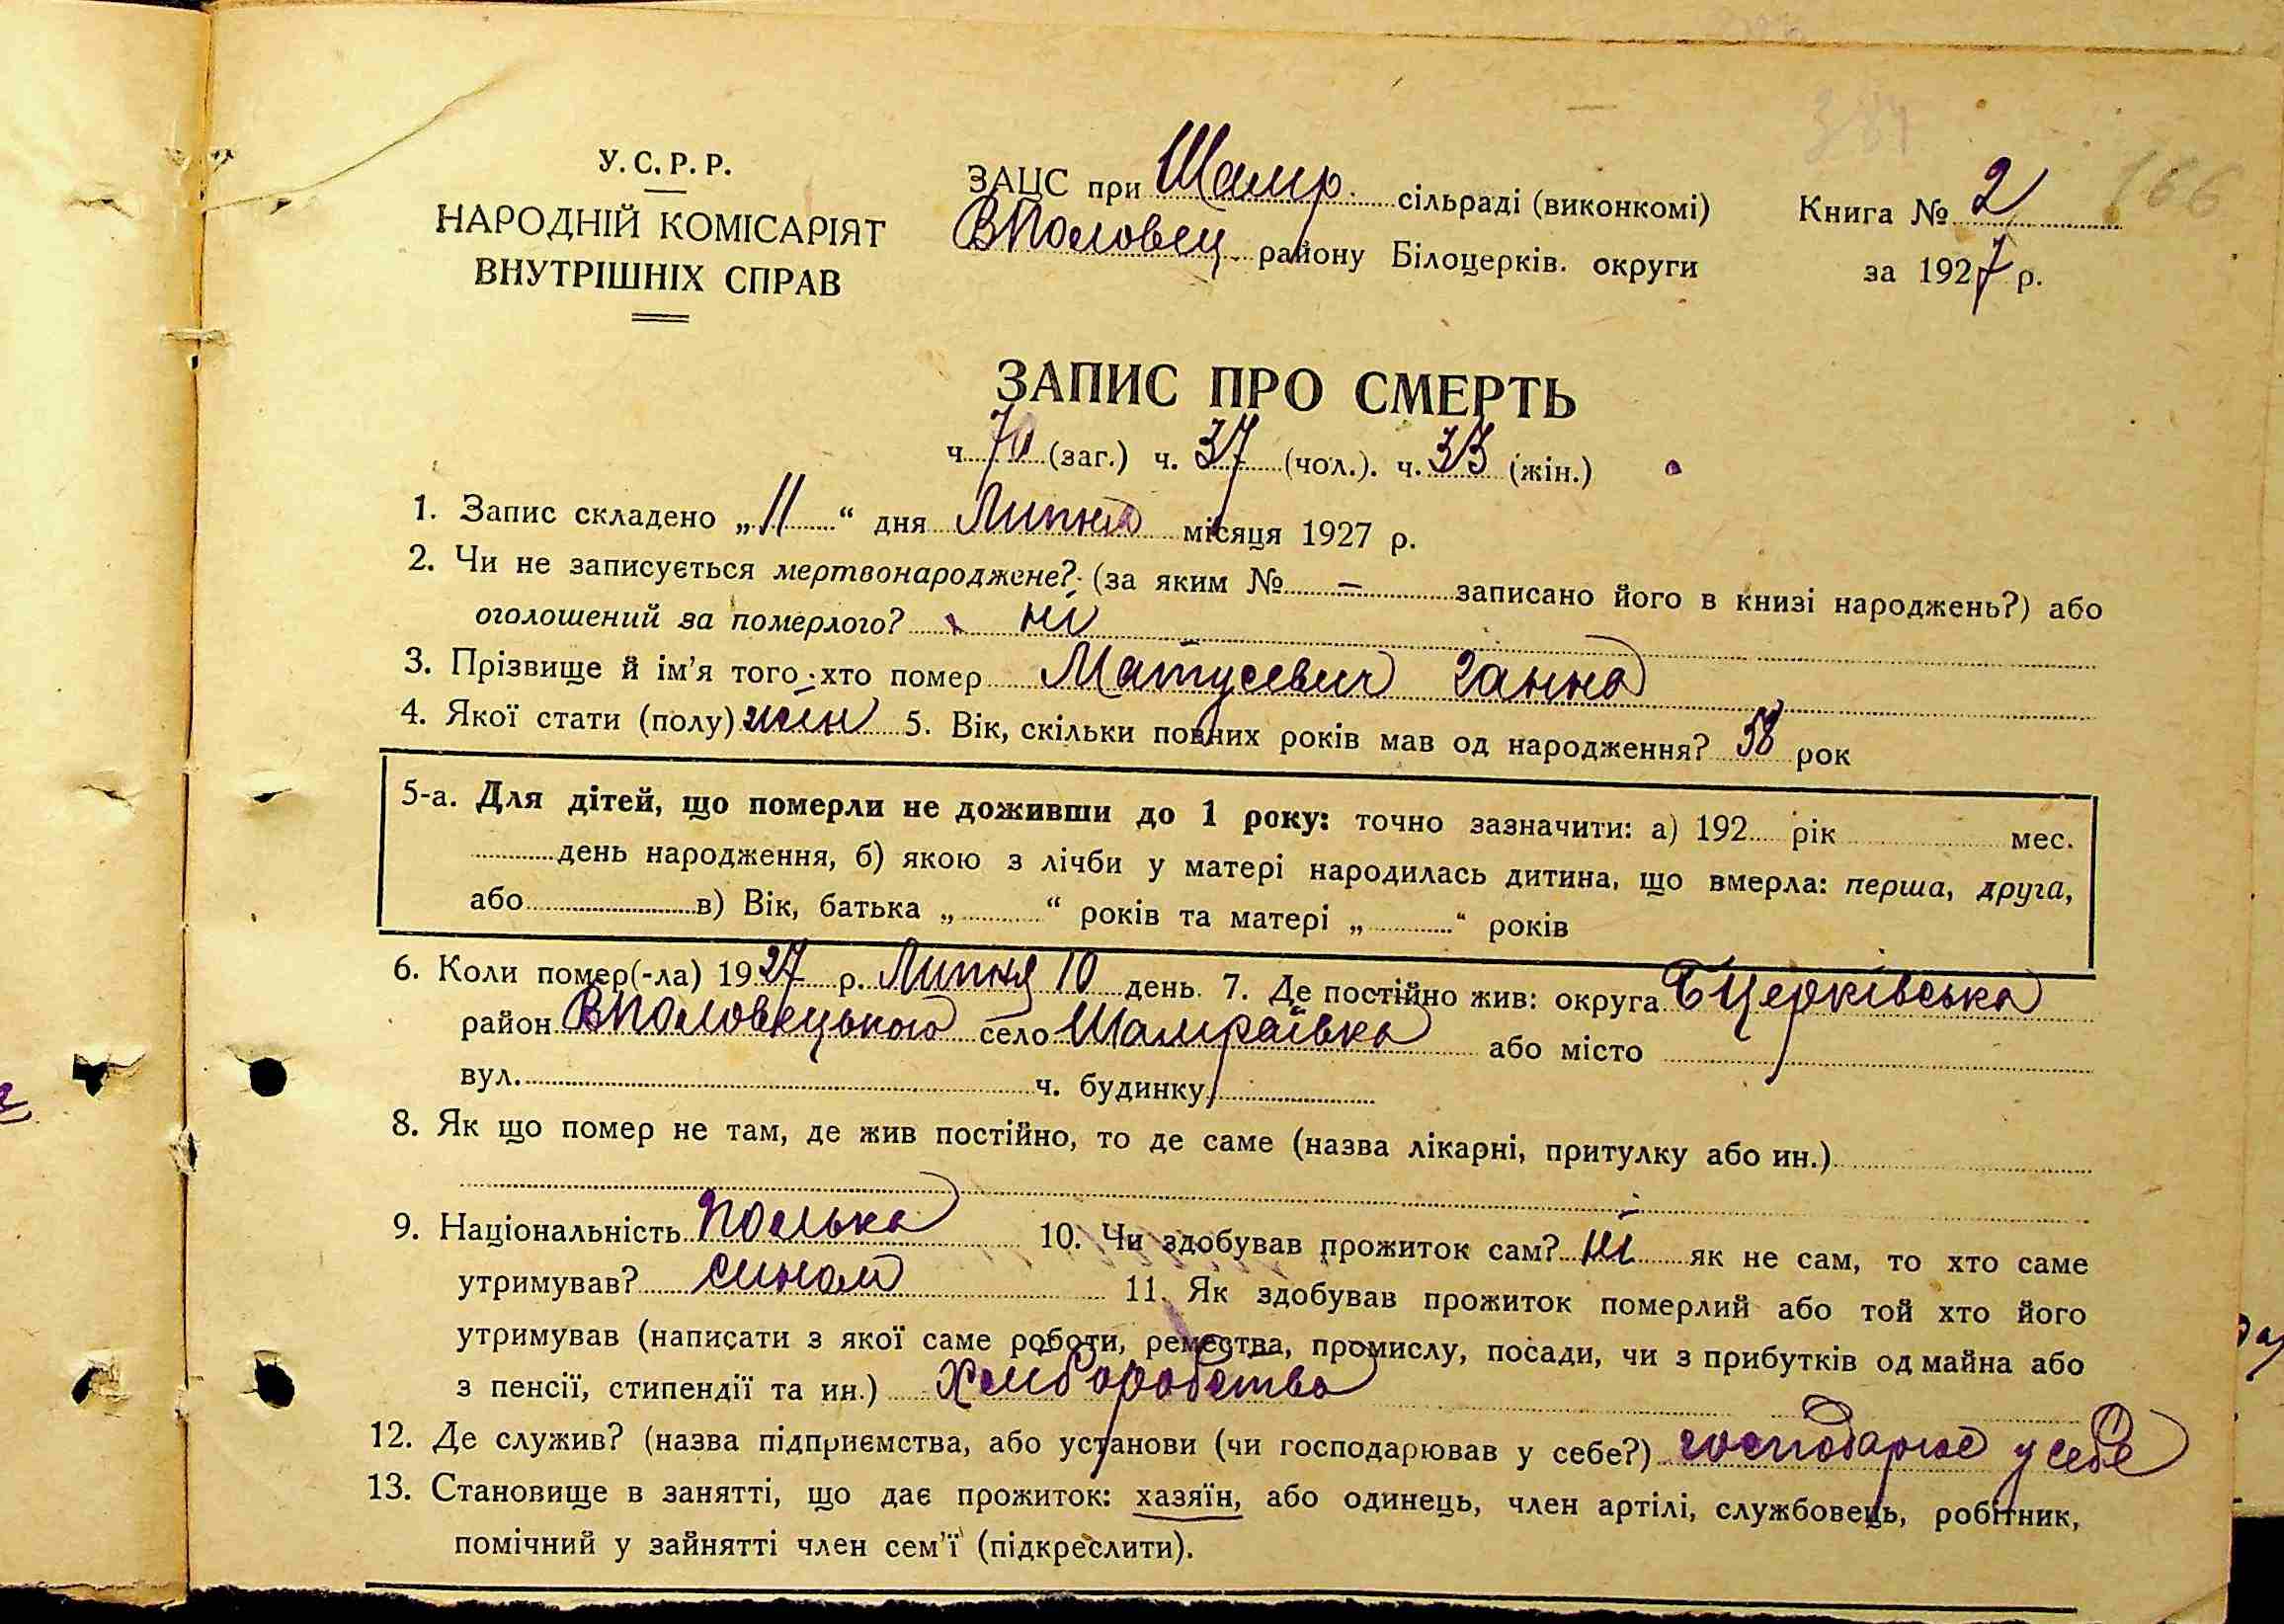 384
166
У.С.Р.Р.
НАРОДНІЙ КОМІСАРІЯТ
ВНУТРІШНІХ СПРАВ
ЗАЦС при Шамр. сільраді (виконкомі)
ВПоловец. району Білоцерків. округи
Книга № 2
за 1927 р.
ЗАПИС ПРО СМЕРТЬ
ч. 70 (заг.) ч. 37 (чол.). ч. 33 (жін.)
1. Запис складено „11“ дня Липня місяця 1927 р.
2. Чи не записується мертвонароджене? (за яким № — записано його в книзі народжень?) або
оголошений за померлого? ні
3. Прізвище й ім'я того, хто помер Матусевич Ганна
4. Якої стати (полу) жін 5. Вік, скільки повних років мав од народження? 58 рок
5-а. Для дітей, що померли не доживши до 1 року: точно зазначити: а) 192... рік ... мес.
... день народження, б) якою з лічби у матері народилась дитина, що вмерла: перша, друга,
або ... в) Вік, батька „...“ років та матері „...“ років
6. Коли помер(-ла) 1927 р. Липня 10 день. 7. Де постійно жив: округа БЦерківська
район ВПоловецького село Шамраївка або місто
вул. ... ч. будинку ...
8. Як що помер не там, де жив постійно, то де саме (назва лікарні, притулку або ин.)
9. Національність полька 10. Чи здобував прожиток сам? ні як не сам, то хто саме
утримував? сином 11. Як здобував прожиток померлий або той хто його
утримував (написати з якої саме роботи, ремества, промислу, посади, чи з прибутків од майна або
з пенсії, стипендії та ин.) Хлиборобство
12. Де служив? (назва підприємства, або установи (чи господарював у себе?) господарює у себе
13. Становище в занятті, що дає прожиток: хазяїн, або одинець, член артілі, службовець, робітник,
помічний у зайнятті член сем'ї (підкреслити).